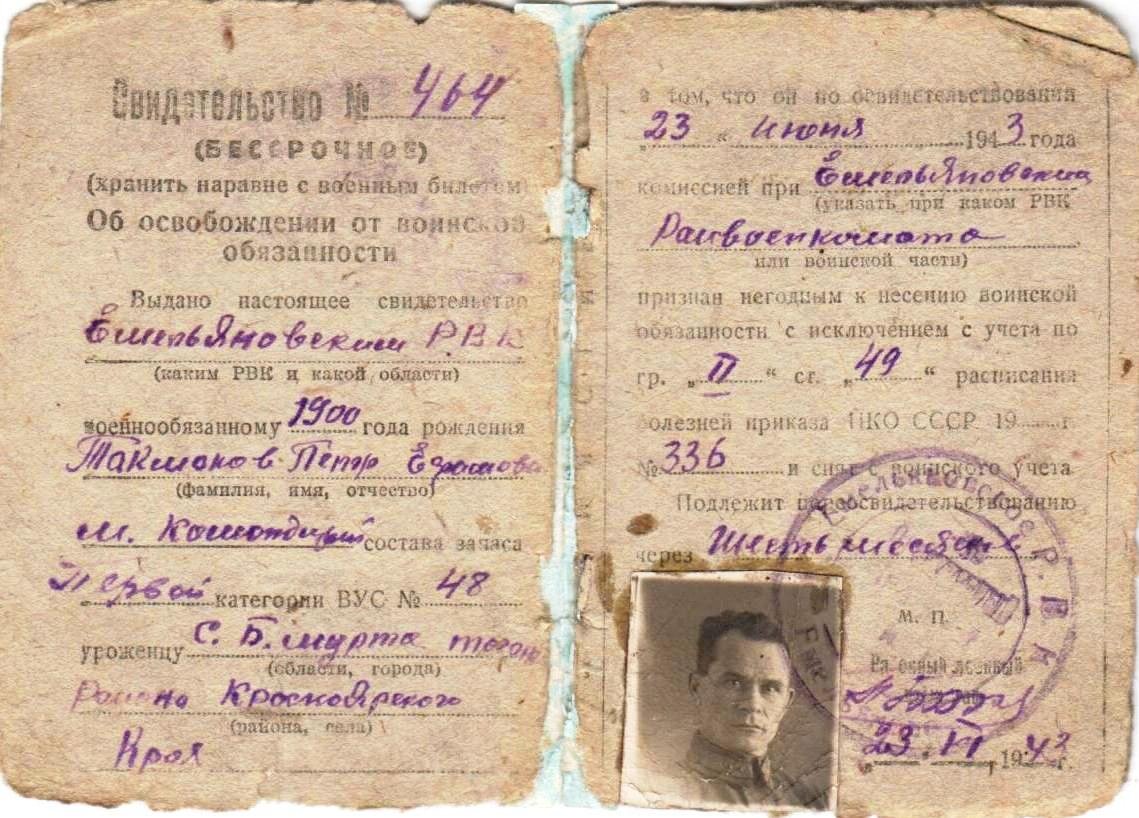 Свидетельство № 464
(БЕССРОЧНОЕ)
(хранить наравне с военным билетом)
Об освобождении от воинской
обязанности
Выдано настоящее свидетельство
Емельяновским РВК
(каким РВК и какой области)
военнообязанному 1900 года рождения
Такмаков Пётр
(фамилия, имя, отчество)
м. Командций состава запаса
Первой категории ВУС № 48
уроженцу С. Б. мурта
(области, города)
Района Красноярского
(района, села)
Края
в том, что он по освидетельствовании
„23“ июня 1943 года
комиссией при Емельяновским
(указать при каком РВК
Райвоенкомата
или воинской части)
признан негодным к несению воинской
обязанности с исключением с учета по
гр. „II“ ст. „49“ расписания
болезней приказа НКО СССР 19 г.
№ 336 и снят с воинского учета
Подлежит переосвидетельствованию
через Шесть месяцев
ЕМЕЛЬЯНОВСКОЕ Р. В. К.
М. П.
Районный военный
„23“ VI 1943 г.